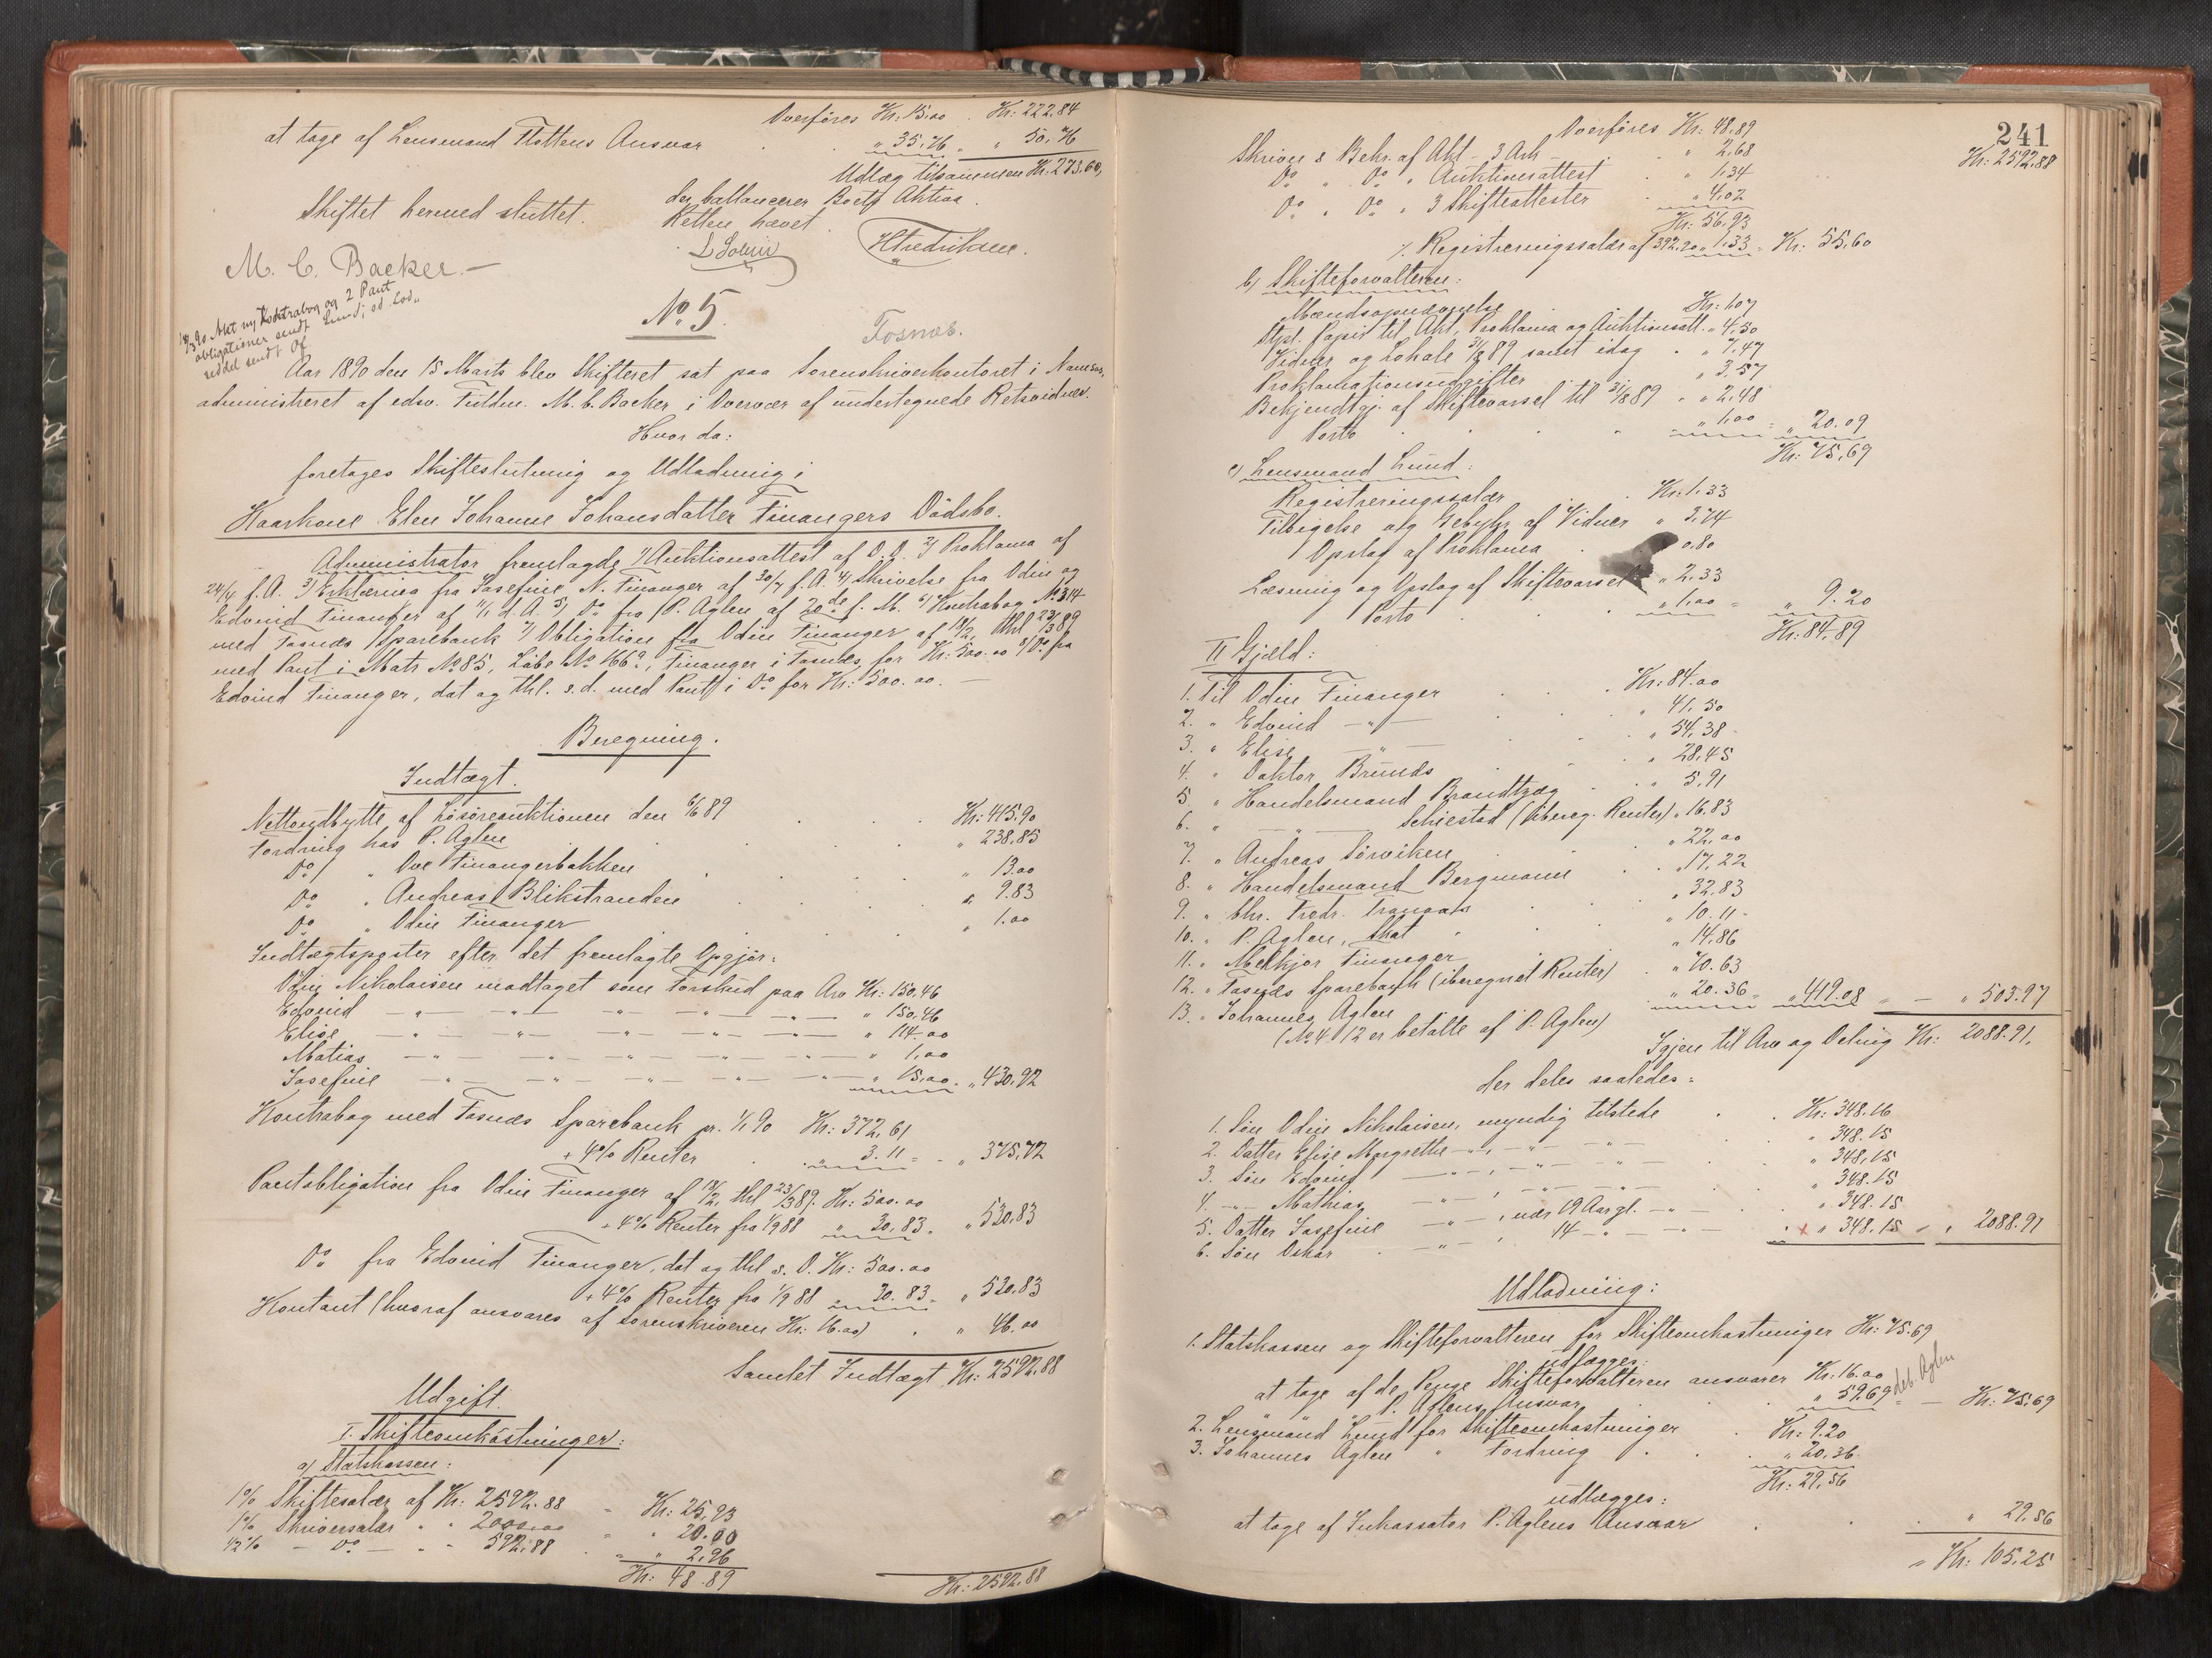 Overføres Kr: 15.00 . Kr: 222.84
at tage af Lensmand Flottens Ansvar . " 35.76 " " 50.76
Udlæg tilsammen Kr. 273.60,
der ballancerer Boets Aktiva.
Skiftet hermed sluttet. Retten hævet.
M. C. Backer.—
HFredriksen.
14/3 90 Akt og Kontrabog og 2 Pant
obligationer sendt Lund;
seddel sendt
No 5.
Fosnæs.
Aar 1890 den 15 Marts blev Skifteret sat paa Sorenskriverkontoret i Namsos,
administreret af edsv. Fuldm. M. C. Backer i Overvær af undertegnede Retsvidner.
Hvor da:
foretoges Skifteslutning og Udlodning i
Kaarkone Elen Johanne Johansdatter Finangers Dødsbo.
Administrator fremlagde 1) Auktionsattest af D. D. 2) Proklama af
24/4 f. A. 3) Erklæring fra Josefine N. Finanger af 30/7 f. A. 4) Skrivelse fra Odin og
Edvind Finanger af 11/1 d. A. 5) Do fra P. Aglen af 20de f. M. 6) Kontrabog No 314
med Fosnæs Sparebank 7) Obligation fra Odin Finanger af 13/2, thl 23/3 89
med Pant i Matr No 85, Løbe No 166a, Finanger i Fosnæs for Kr: 500.00 8) Do fra
Edvind Finanger, dat og thl. s. d. med Pant i Do for Kr: 500.00. —
Beregning.
Indtægt.
Nettoudbytte af Løsøreauktionen den 6/6 89 . . . Kr: 415.90
Fordring hos P. Aglen . . . " 238.85
Do " Ove Finangerbakken . . . " 13.00
Do " Andreas Blikstranden . . . " 9.83
Do " Odin Finanger . . . " 1.00
Indtægtsposter efter det fremlagte Opgjør:
Odin Nikolaisen modtaget som Forskud paa Arv Kr: 150.46
Edvind —"— —"— —"— —"— —"— " 150.46
Elise —"— —"— —"— —"— —"— " 114.00
Matias —"— —"— —"— —"— —"— " 1.00
Josefine —"— —"— —"— —"— —"— " 15.00 = " 430.92
Kontrabog med Fosnæs Sparebank pr. 1/1 90 Kr: 372.61
+ 4% Renter . . " 3.11 = " 375.72
Pantobligation fra Odin Finanger af 13/2, thl 23/3 89. Kr: 500.00
+ 4% Renter fra 1/9 88 " 30.83 = " 530.83
Do fra Edvind Finanger, dat og thl s. D. Kr: 500.00
+ 4% Renter fra 1/9 88 " 30.83 = " 530.83
Kontant (hvoraf ansvares af Sorenskriveren Kr: 16.00) . " 46.00
Samlet Indtægt Kr: 2592.88
Udgift.
I. Skifteomkostninger:
a) Statskassen:
1% Skiftesalær af Kr: 2592.88 = Kr: 25.93
1% Skriversalær " " 2000.00 = " 20.00
1/2% — Do — " " 592.88 = " 2.96
Kr: 48.89 Kr: 2592.88
241
Overføres Kr: 48.89 Kr: 2592.88
Skriver & Behr. af Akt — 3 Ark — . " 2.68
Do " Do " Auktionsattest . " 1.34
Do " Do " 3 Skifteattester . " 4.02
Kr: 56.93
÷ Registreringssalær af 392.20 " 1.33 = Kr: 55.60
b) Skifteforvalteren:
Mændsopnævnelse . Kr: 1.07
Stpl. Papir til Akt, Proklama og Auktionsatt. " 4.50
Vidner og Lokale 31/8 89 samt idag . " 7.47
Proklamationsudgifter . " 3.57
Bekjendtgj. af Skiftevarsel til 31/8 89 . " 2.48
Porto . . . " 1.00 = " 20.09
Kr: 75.69
c) Lensmand Lund:
Registreringssalær . Kr: 1.33
Tilsigelse og Gebyhr af Vidner " 3.74
Opslag af Proklama . " 0.80
Læsning og Opslag af Skiftevarsel " 2.33
Porto . . " 1.00 = " 9.20
Kr: 84.89
II Gjæld:
1. Til Odin Finanger . . . Kr: 84.00
2. " Edvind —"— . . " 41.50
3. " Elise —"— . . " 54.38
4. " Doktor Brunés . . " 28.45
5. " Handelsmand Brandtzæg . . " 5.91
6. " —"— Schiestad (ibereg. Renter) " 16.83
7. " Andreas Sørviken . . " 22.00
8. " Handelsmand Bergmann . . " 17.22
9. " Chr. Fredr. Tranaas . " 32.83
10. " P. Aglen, Skat . " 10.11
11. " Melkjor Finanger . " 14.86
12. " Fosnæs Sparebank (iberegnet Renter) . " 70.63
13. " Johannes Aglen . " 20.36 = " 419.08 = — " 503.97
(No 4 & 12 er betalte af P. Aglen)
Igjen til Arv og Deling Kr: 2088.91.
der deles saaledes:
1. Søn Odin Nikolaisen, myndig tilstede . . Kr: 348.16
2. Datter Elise Margrethe —"—, —"— . . " 348.15
3. Søn Edvind —"—, —"— . . " 348.15
4. —"— Mathias —"—, —"— . " 348.15
5. Datter Josefine —"—, nær 19 Aar gl. —"— . " 348.15
6. Søn Oskar —"—, 14 —"— . x " 348.15 = " 2088.91
Udlodning:
1. Statskassen og Skifteforvalteren for Skifteomkostninger Kr: 75.69
udlægges:
at tage af de Penge Skifteforvalteren ansvarer Kr: 16.00
" " " P. Aglens Ansvar . . " 59.69 = — Kr: 75.69
deb. Aglen
2. Lensmand Lund for Skifteomkostninger . Kr: 9.20
3. Johannes Aglen " Fordring . . " 20.36
Kr: 29.56
udlægges:
at tage af Inkassator P. Aglens Ansvar . . . " 29.56
" Kr: 105.25